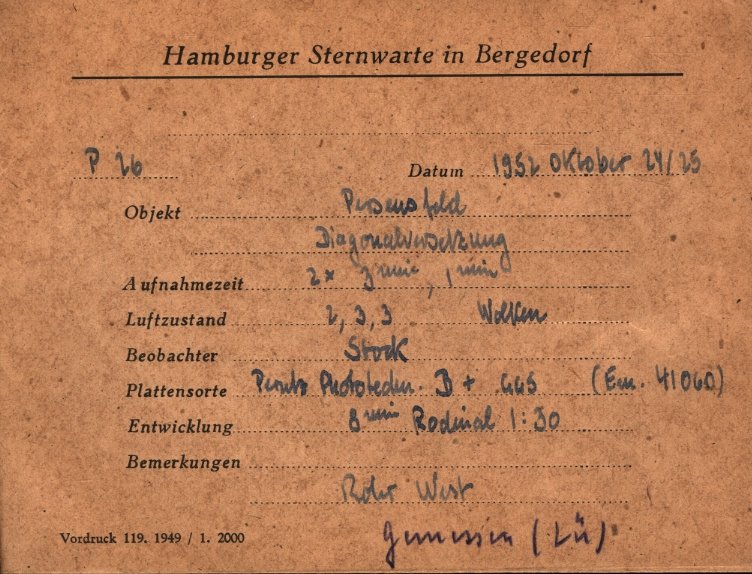 Hamburger Sternwarte in Bergedorf
P 26 Datum 1952 Oktober 24/25
Objekt Perseusfeld
Diagonalversetzung
Aufnahmezeit 2x 3 min, 1 min
Luftzustand 2, 3, 3 Wolken
Beobachter Stock
Plattensorte Perutz Phototechn. B + GG5 (Em. 41060)
Entwicklung 8 min Rodinal 1:30
Bemerkungen
Rohr West
Vordruck 119. 1949 / 1. 2000
gemessen (Lü)